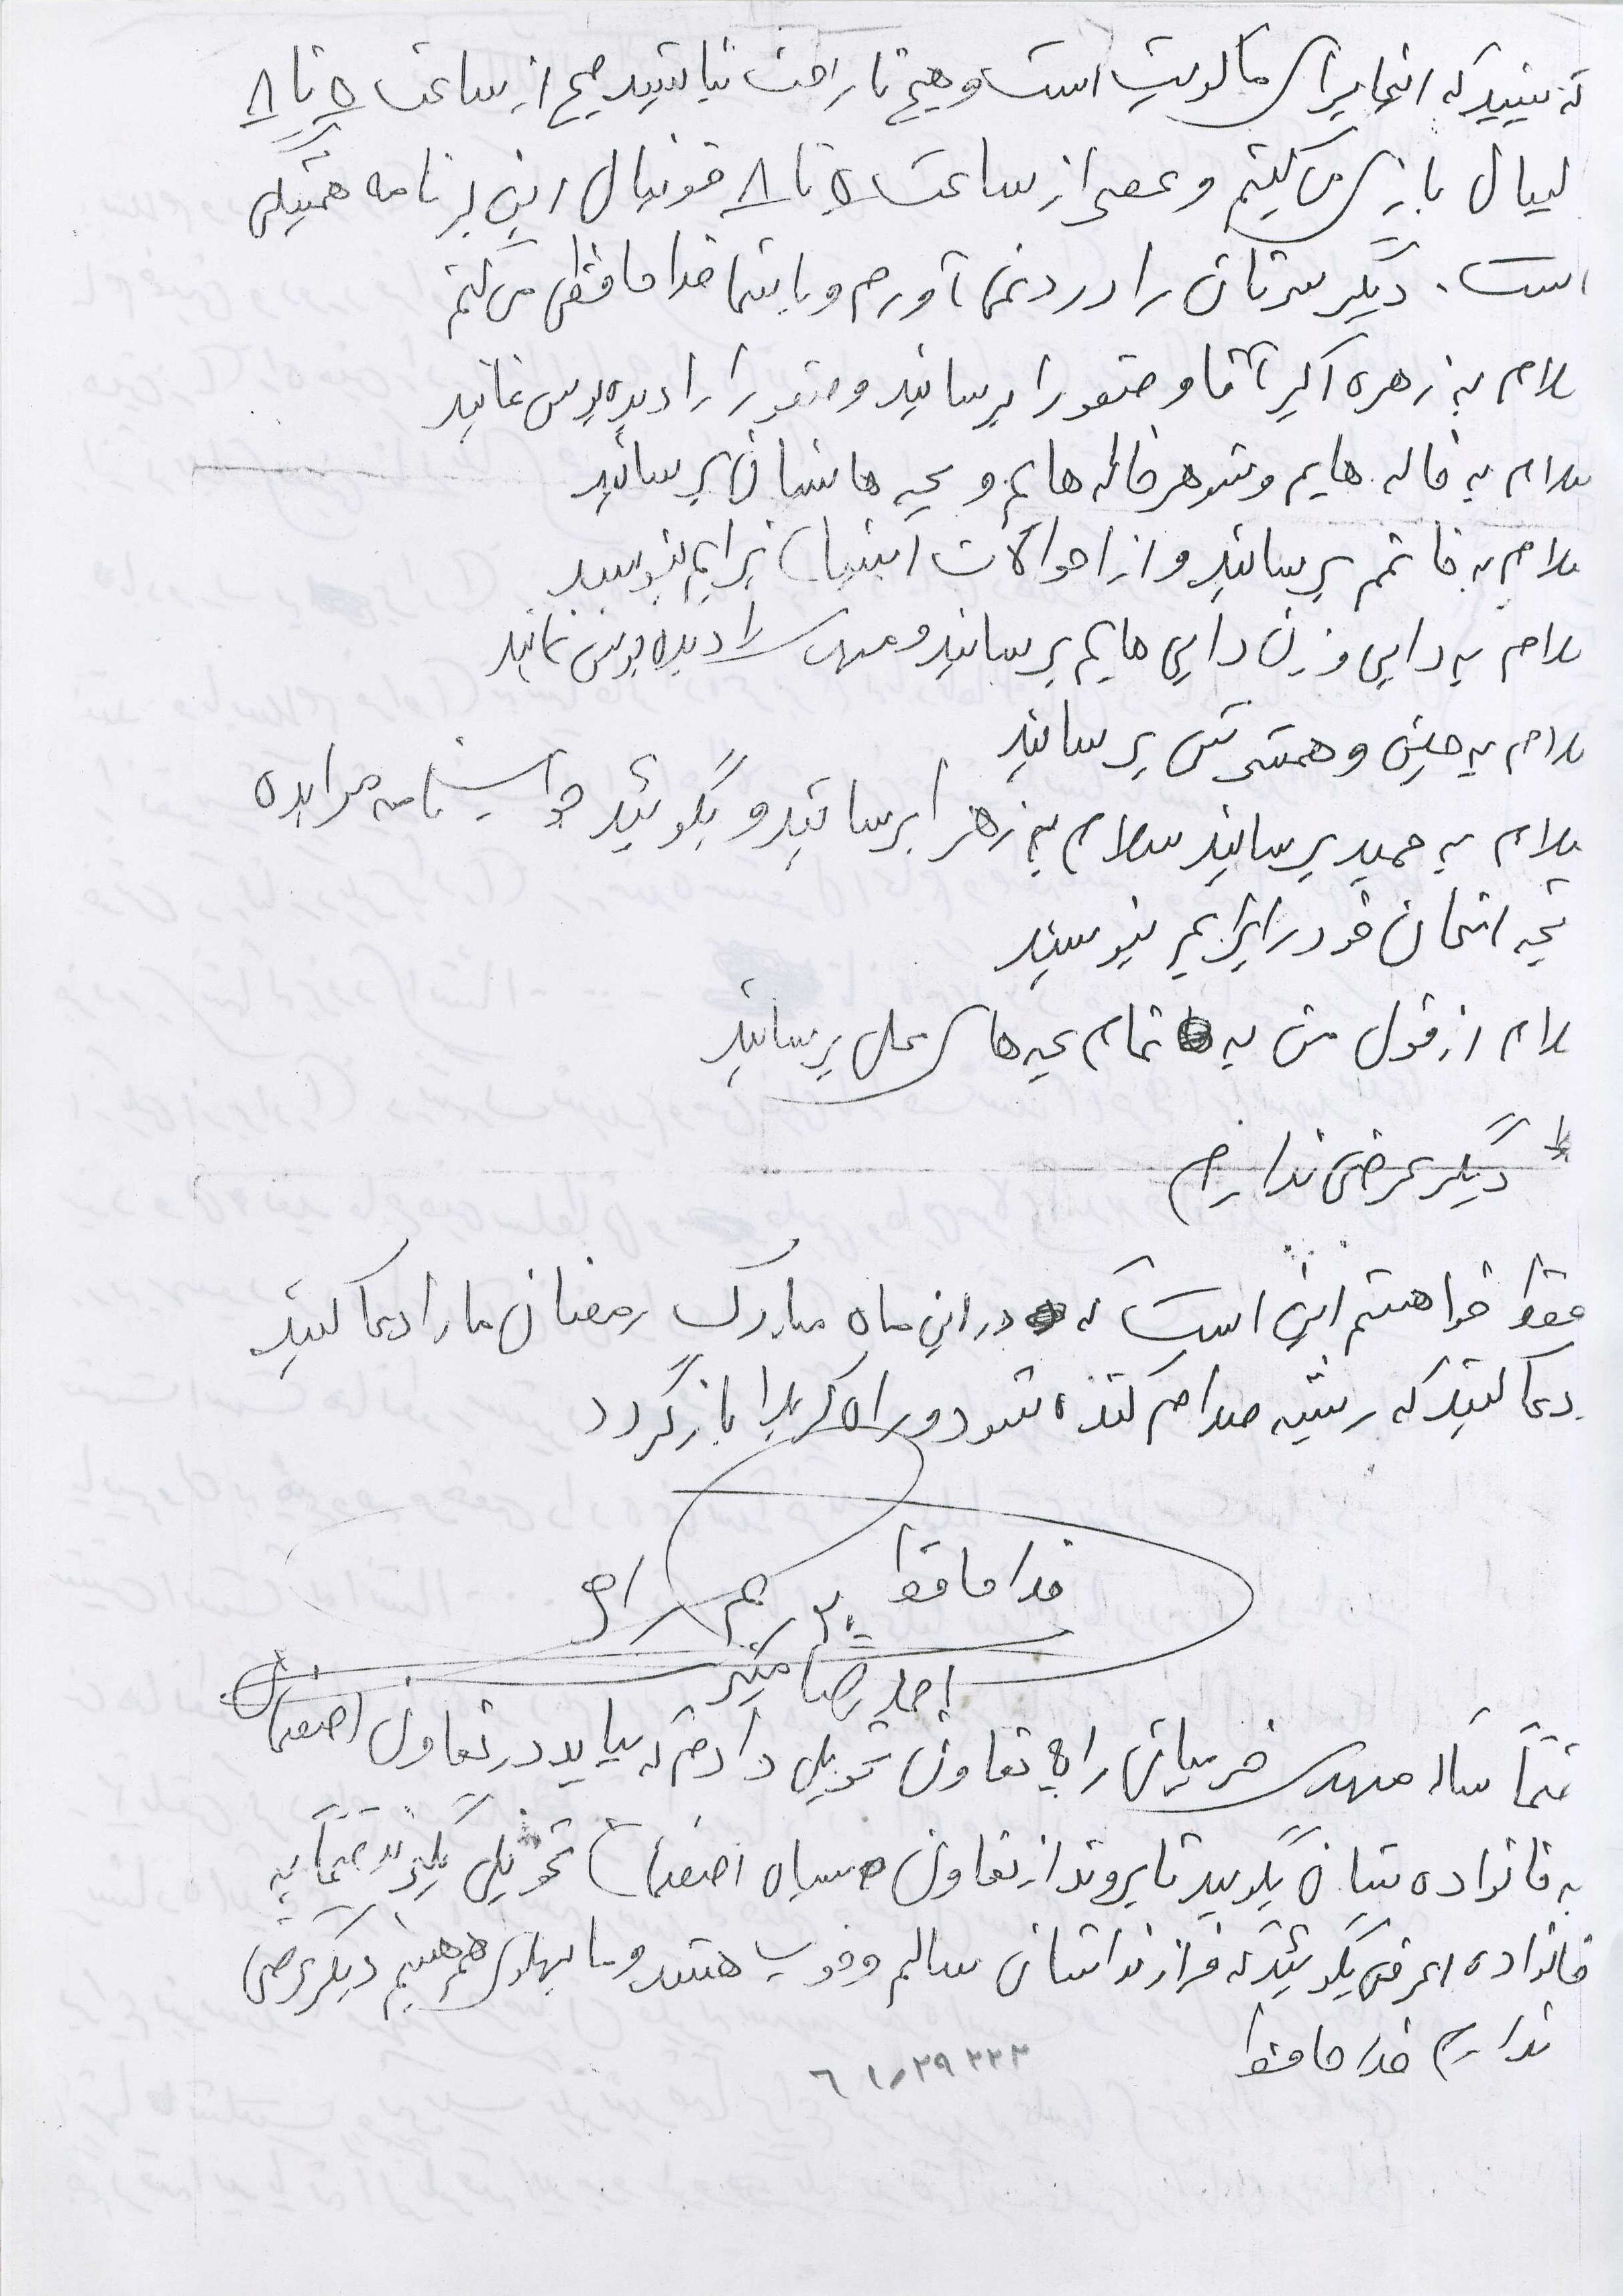 که ببینید که اینجا برای ما کویت است و هیچ ناراحت نباشید صبح از ساعت ۵ تا ۸
لیبال بازی می‌کنیم و عصر از ساعت ۵ تا ۸ فوتبال این برنامه همیشگی
است. دیگر سرتان را درد نمی‌آورم و با شما خداحافظی می‌کنم
سلام به زهره اکبر آقا و صفورا برسانید و صفورا را دیده بوسی نمائید
سلام به خاله هایم و شوهر خاله هایم و بچه هایشان برسانید
سلام به خانم برسانید و از احوالات ایشان برایم بنویسید
سلام به دایی و زن دایی هایم برسانید و مهدی را دیده بوسی نمائید
سلام به حسن و همسرش برسانید
سلام به حمید برسانید سلام به زهرا برسانید و بگوئید جواب نامه مرا بده
نتیجه امتحان خود را برایم بنویسید
سلام از قول من به تمام بچه های محل برسانید
دیگر عرضی ندارم
فقط خواهشم این است که در این ماه مبارک رمضان ما را دعا کنید
دعا کنید که ریشه صدام کنده شود و راه کربلا باز گردد
خداحافظ
احمدرضا
ضمناً ساک مهدی را به تعاون تحویل دادم که بیاید در تعاون اصفهان
به خانواده شان بگویید تا بروند از تعاون سپاه اصفهان تحویل بگیرند ضمناً به
خانواده بگوئید که فرزندانشان سالم و خوب هستند و ما پهلوی هم هستیم دیگر عرضی
ندارم خداحافظ
۶۱٫۲۹۲۲۳